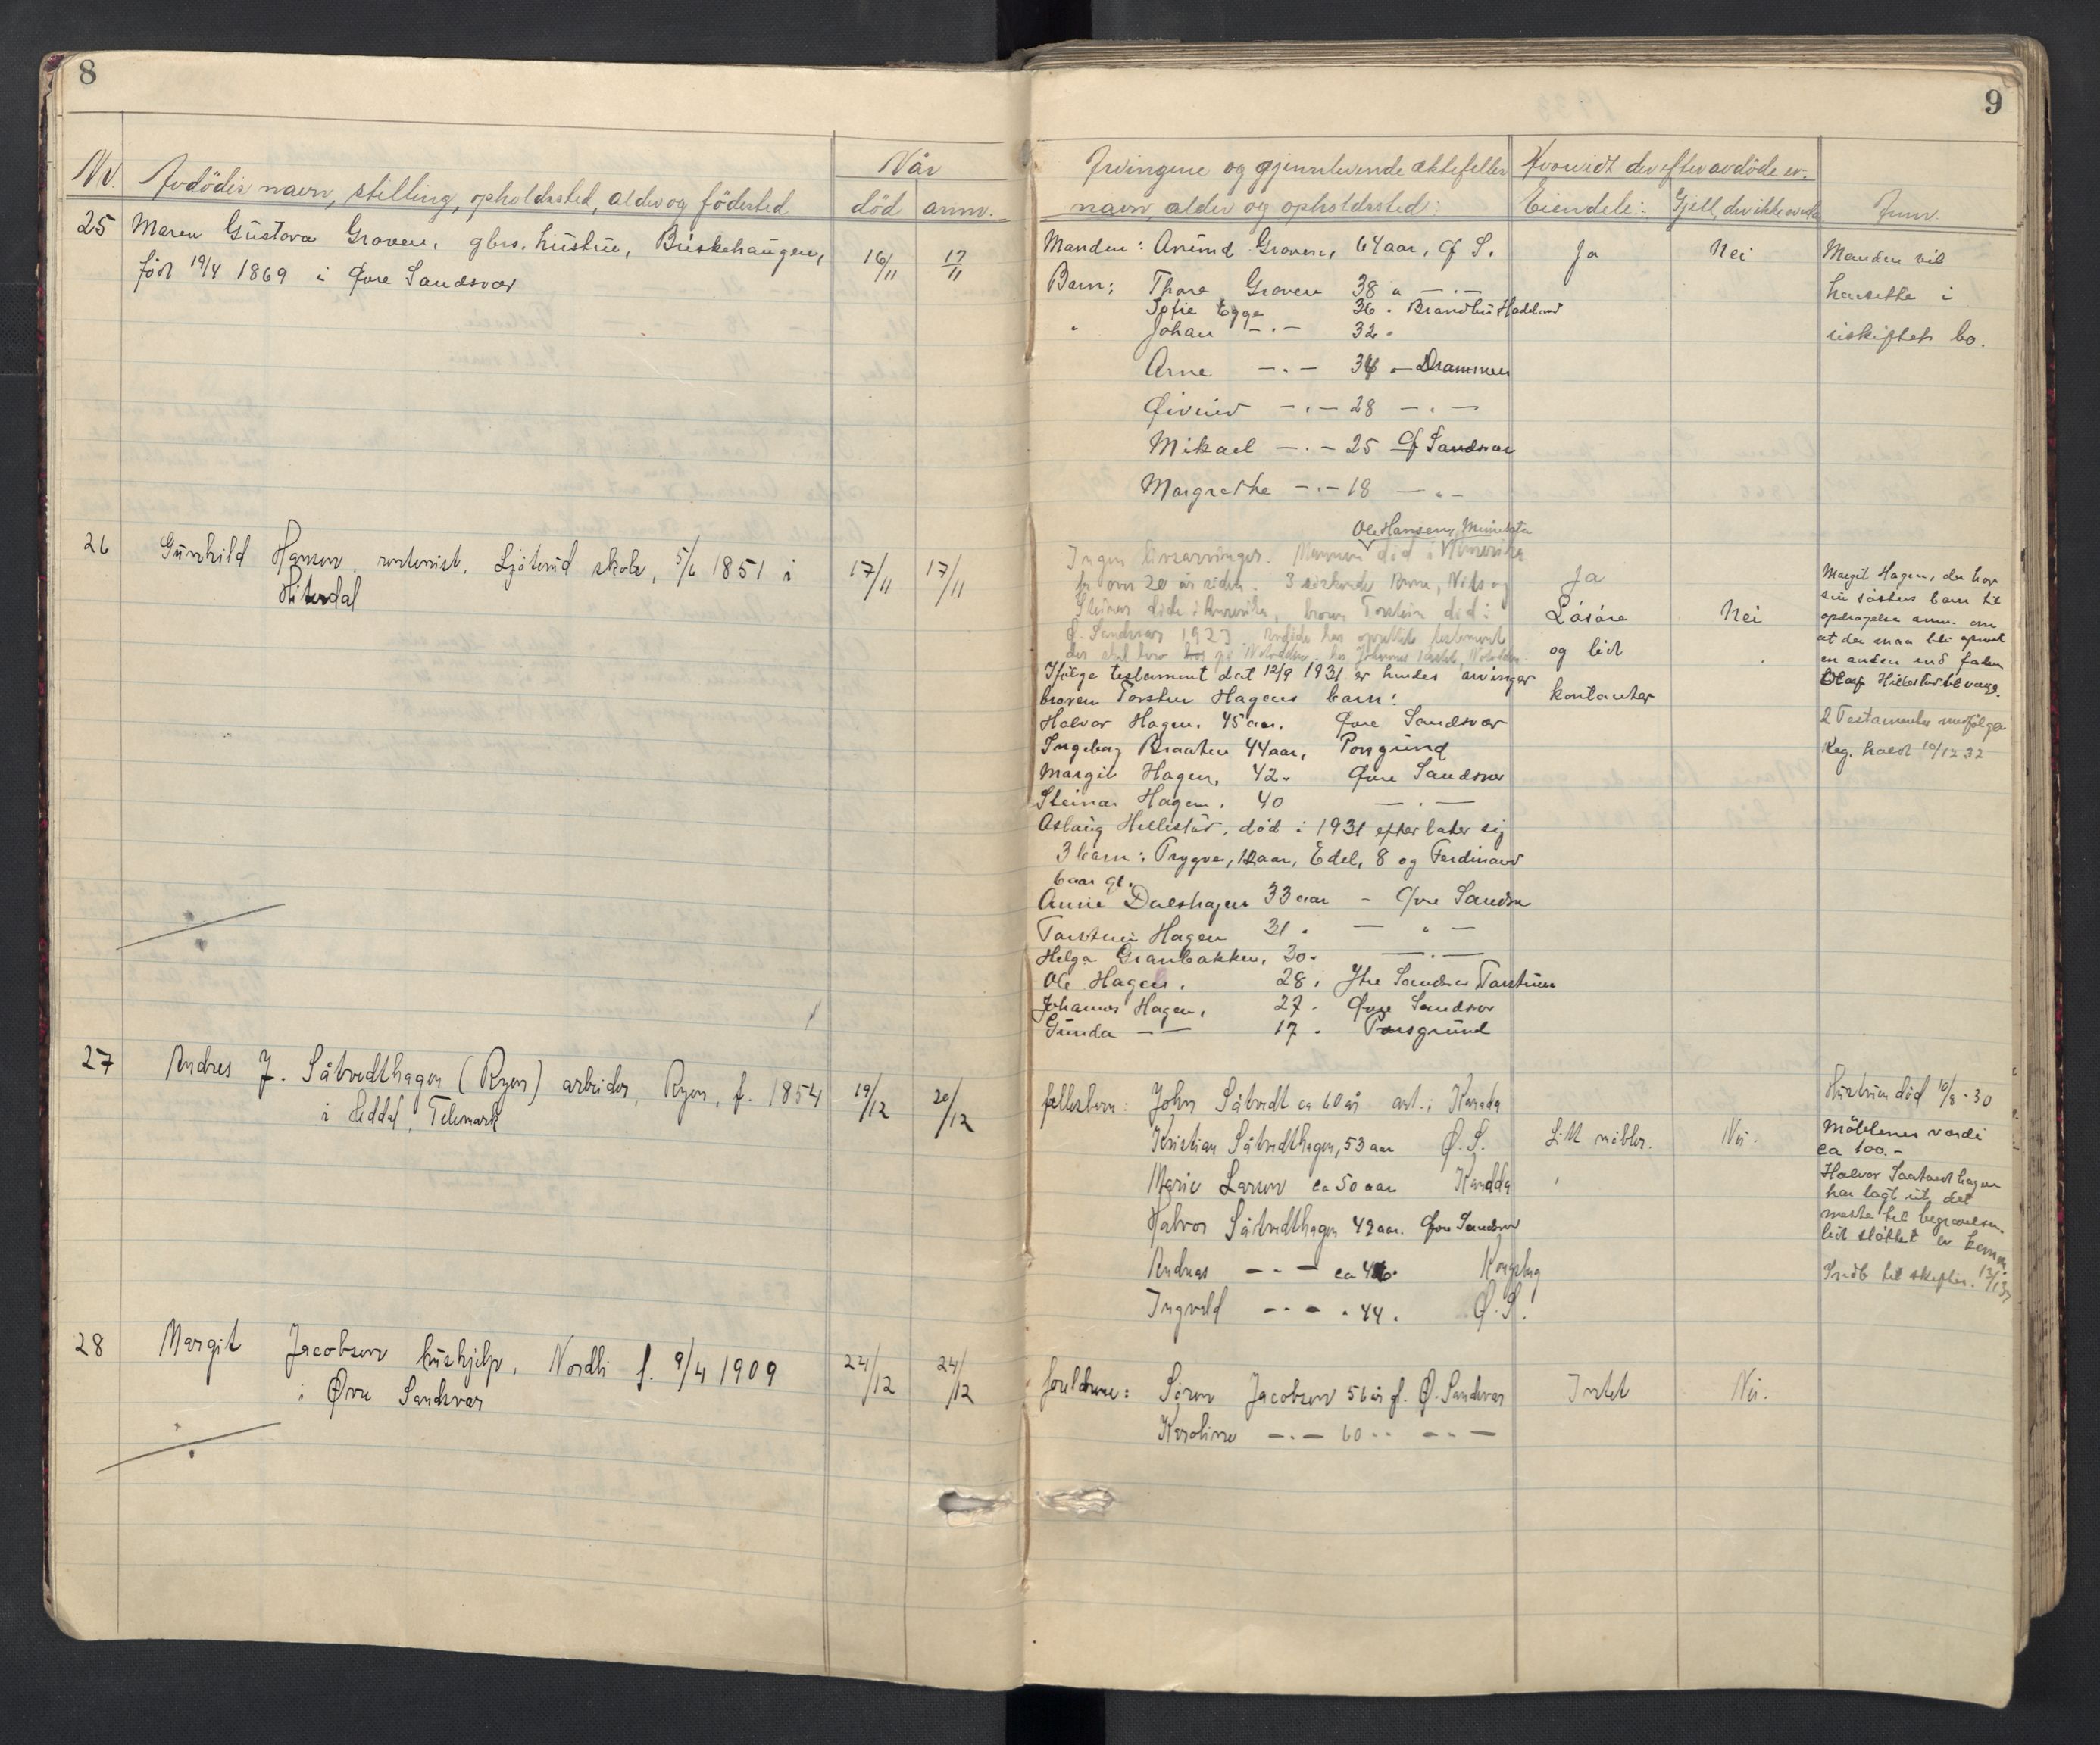 8
Nr.
Avdödes navn, stilling, opholdssted, alder og födested
Når
död
anm.
25
Maren Gustava Graven, gbr. hustru, Buskehaugen,
född 19/4 1869 i Øvre Sandsvær
16/11
17/11
26
Gunhild Hansen, rentenist, Ljøterud skole, 5/6 1851 i
Hiterdal
17/11
17/11
27
Andres J. Såtvedthagen (Ryen) arbeider, Ryen, f. 1854
i Heddal, Telemark
19/12
20/12
28
Margit Jacobsen hushjelp, Nordli f. 9/4 1909
i Øvre Sandsvær
24/12
24/12
9
Arvingene og gjenlevende ektefelles
navn, alder og opholdssted:
Hvorvidt der efter avdöde er:
Eiendele:
Gjell, der ikke
Anm.
Manden: Anund Graven, 64 aar, Ø S.
Barn: Thora Graven 38 a — . —
Sofie Egge 36 . Brandbu Hadeland
" Johan — . — 32 .
Arne — . — 34 . — Drammen
Øivind — . — 28 — . —
Mikael — . — 25 Ø Sandsvær
Margrethe — . — 18 — " —
Ja
Nei
Manden vil
hensitte i
uskiftet bo.
Ole Hansen, Minnesota
Ingen livsarvinger. Mannen död i Amerika
for om 20 år siden. 3 söskende Anne, Nils og
Steinar döde i Amerika, broren Torstein död i
Ø. Sandsvær 1923. Avdöde har oprettet testament
der skal bero hos på Notodden
Ifølge testament dat 12/9 1931 er hendes arvinger
broren Torsten Hagens barn:
Halvor Hagen. 45 aar. Øvre Sandsvær
Ingeborg Braaten 44 aar, Porsgrund
Margit Hagen, 42 . Øvre Sandsvær
Steinar Hagen. 40 — . —
Aslaug Hellestad, död i 1931 efterlater sig
3 barn: Trygve, 12 aar, Edel, 8 og Ferdinand
6 aar gl.
Anne Dalshagen 33 aar — Øvre Sandsv
Torstein Hagen 31 . — " —
Helga Granbakken, 30 . — . —
Ole Hagen. 28, Ytre Sandsvær
Johannes Hagen, 27 . Øvre Sandsvær
Gunda — — 17 . Porsgrund
Ja
Lösøre
og litt
kontanter
Nei
Margit Hagen, der har
sin søsters barn til
opdragelse anm. om
at der maa bli opnevnt
en anden end faderen
Olaf Hellestad til verge.
2 Testamenter medfølger
Reg. holdt 10/12 32
fellesbarn: John Såtvedt ca 60 år ant. i Kanada
Kristian Såtvedthagen, 53 aar Ø. S.
Marie Larsen ca 50 aar Kanada
Halvor Såtvedthagen 49 aar. Øvre Sandsvær
Andreas — - — ca 46 . Kongsberg
Ingvald — - — . 44 . Ø. S.
Litt møbler.
Nei.
Hustruen död 10/8 - 30
Möblenes verdi
ca 100.-
Halvor Saatvedthagen
har lagt ut det
meste til begravelsen.
litt støttet av komm.
Sendt til skiften.
foreldrene: Sören Jacobsen 56 år f. Ø. Sandsvær
Karoline — . — 60 . . — . . —
Intet
Nei.